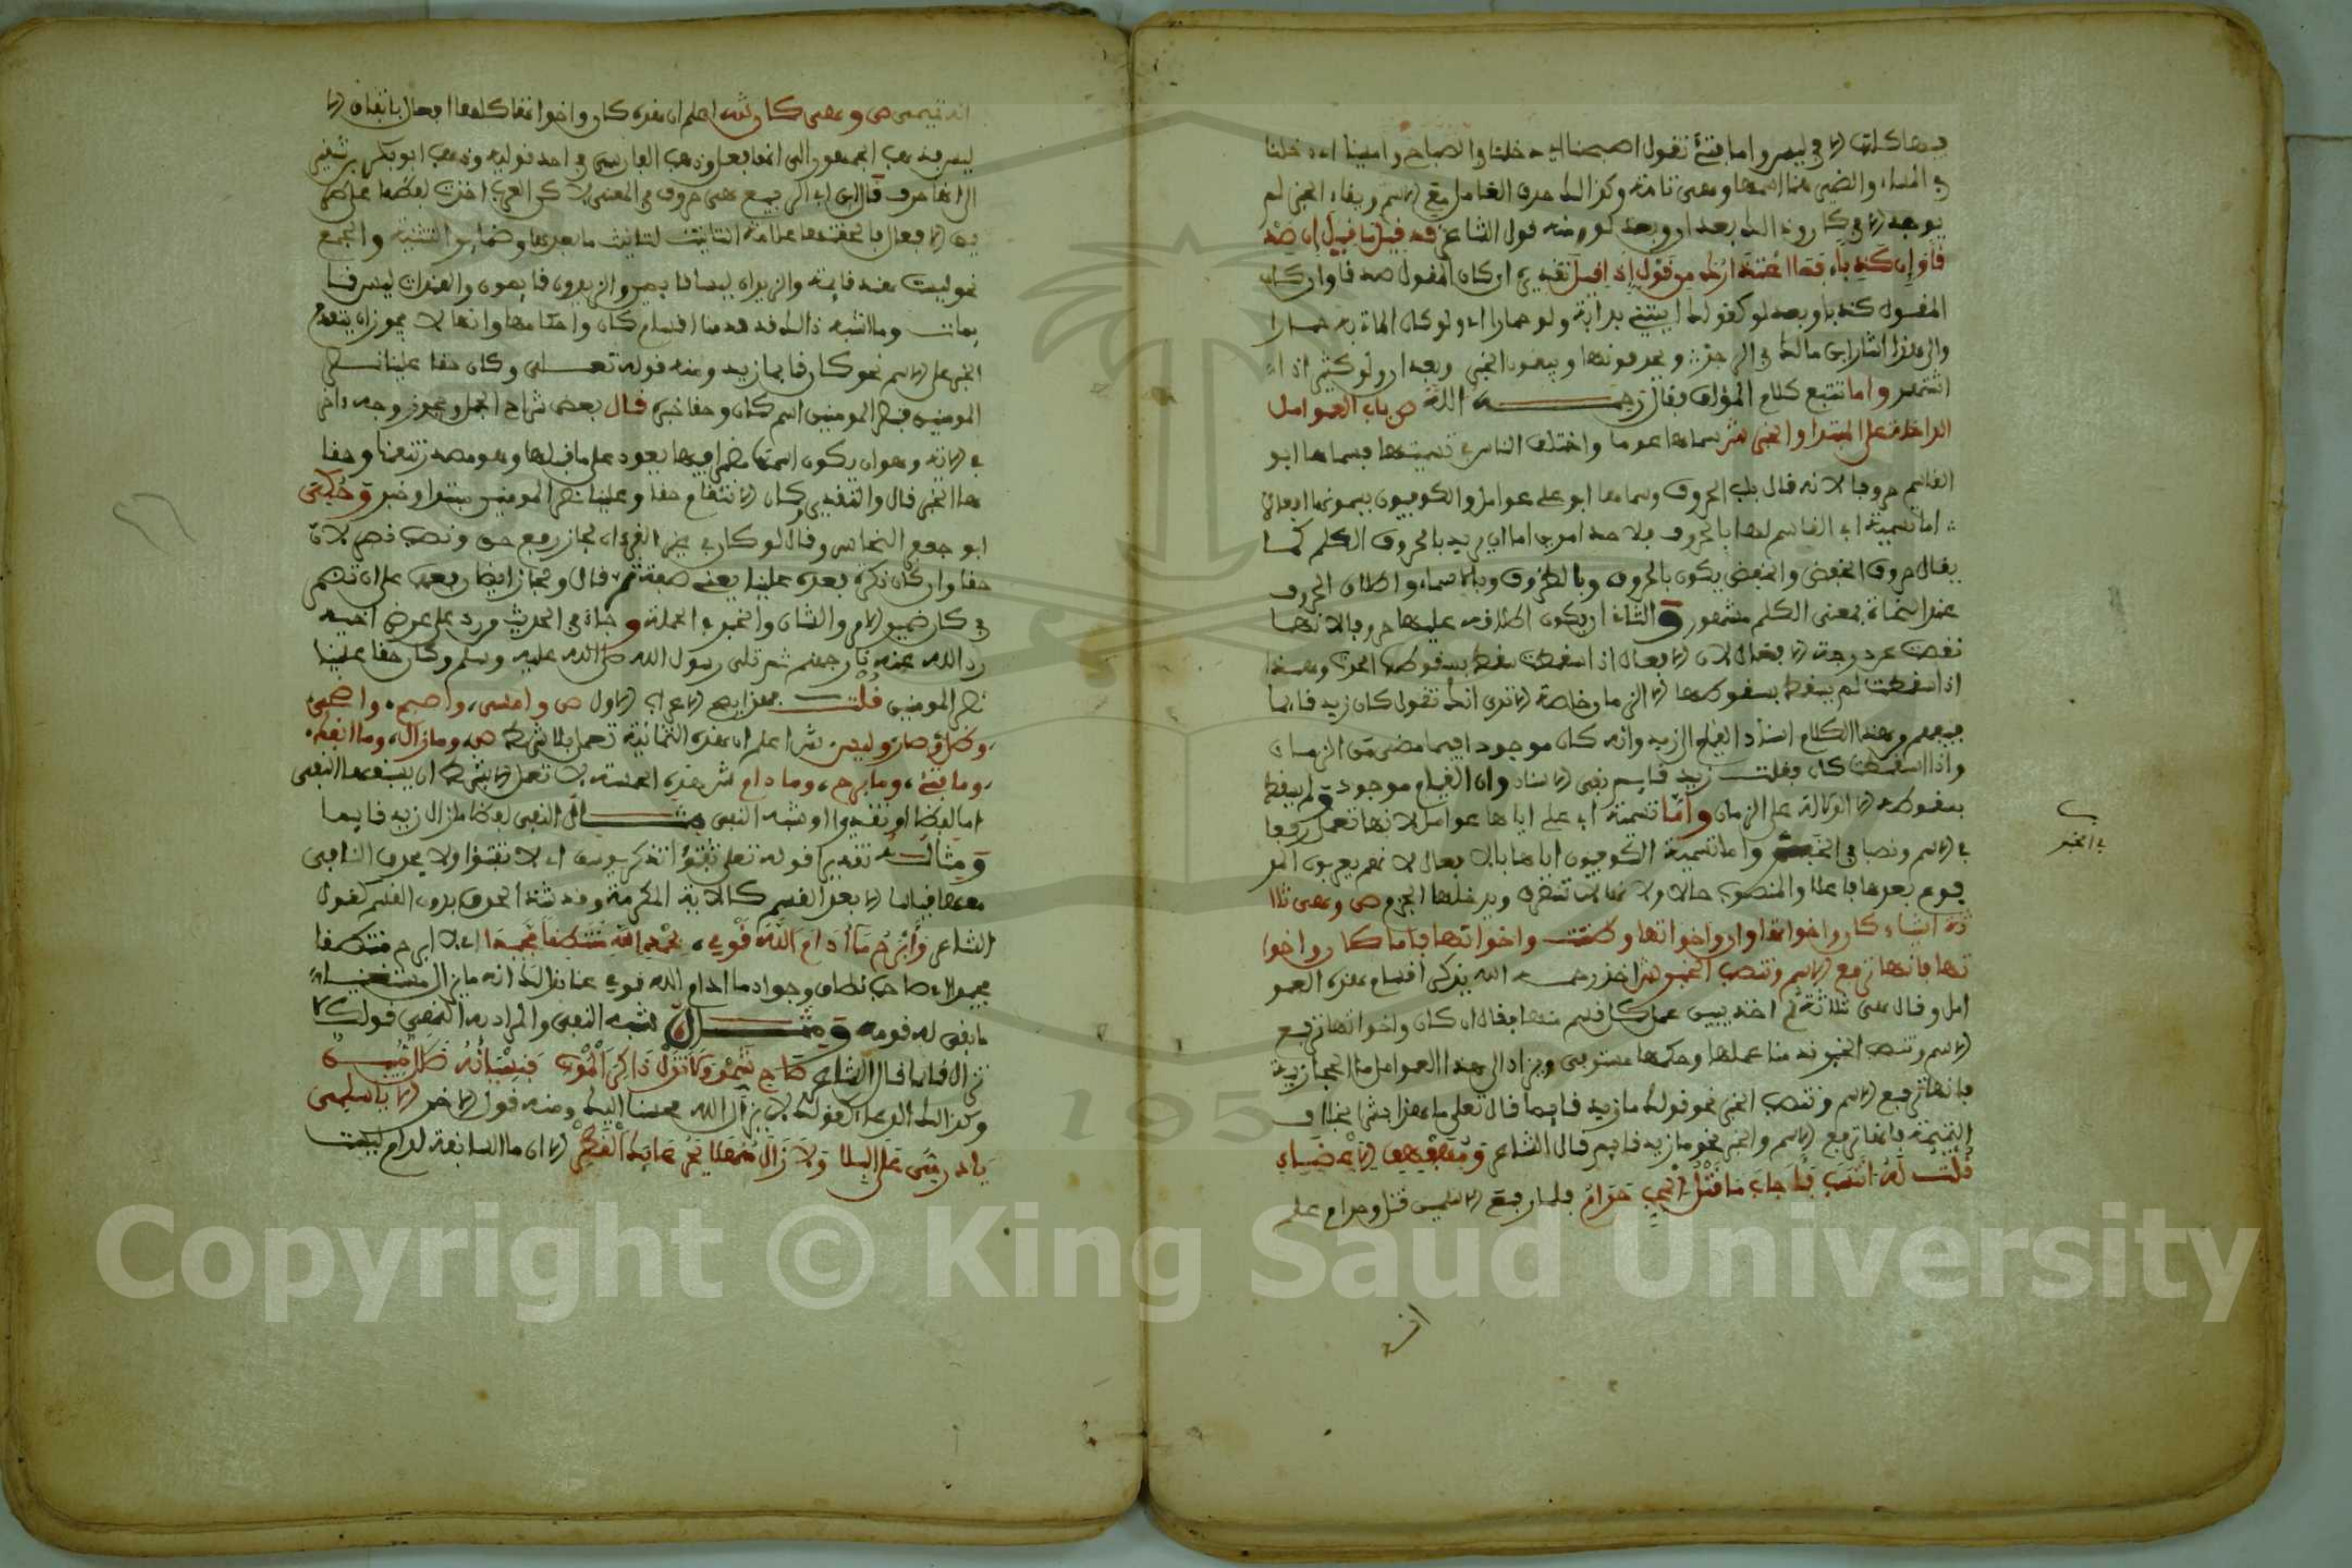 فيها كلها الا في ليس واما فتئ تقول اصبحنا اي دخلنا في الصباح وامسينا اي دخلنا
في المساء والضحى هنا اسمها وهي تامة وكذالك حذف العامل مع الاسم وبقاء الخبر لم
يوجد الا في كان وذالك بعد ان وبعد لو ومنه قول الشاعر قد قيل ما قيل ان صد
قا وان كذبا فما اعتذارك من قول اذا قيل تقديره ان كان المقول صدقا وان كان
المقول كذبا وبعد لو كقولك ايتني بدابة ولو حمارا اي ولو كان الماتي به حمارا
والى هذا اشار ابن مالك في الرجز ويحذفونها ويبقون الخبر وبعد ان ولو كثيرا ذا
اشتهر واما تتبع كلام المؤلف فقال رحمه الله ص باب العوامل
الداخلة على المبتدا والخبر ش سماها عوما واختلف الناس في تسميتها فسماها ابو
القاسم حروفا لانه قال باب الحروف وسماها ابو علي عوامل والكوفيون يسمونها افعالا
اما تسمية ابي القاسم لها بالحروف فلاحد امرين اما ان يريد بالحروف الكلم كما
يقال حروف الخفض والخفض يكون بالحروف وبالظروف وبالاسماء واطلاق الحروف
عند النحاة بمعنى الكلم مشهور والثاني ان يكون اطلاقه عليها حروفا لانها
نقصت عن درجة الافعال لان الافعال اذا اسقطت سقط بسقوطها الحدث وهذا
اذا سقطت لم يسقط بسقوطها الا الزمان خاصة الا ترى انك تقول كان زيد قايما
فيفهم من هذا الكلام اسناد القيام الى زيد وانه كان موجودا فيما مضى من الزمان
واذا اسقطت كان فقلت زيد قايم بقي الاسناد وان القيام موجود ولم يسقط
بسقوطه الا الدلالة على الزمان واما تسمية ابي علي اياها عوامل لانها تعمل رفعا
في الاسم ونصبا في الخبر واما تسمية الكوفيون اياها بالافعال لانهم يعربون المر
فوع بعدها فاعلا والمنصوب حالا ص وهي ثلا
ثة اشياء كان واخواتها وان واخواتها وظننت واخواتها فاما كان واخوا
تها فانها ترفع الاسم وتنصب الخبر ش اخذ رحمه الله يذكر اقسام هذه العو
امل وقال هي ثلاثة ثم اخذ يبين عمل كل قسم منها فقال ان كان واخواتها ترفع
الاسم وتنصب الخبر قدمنا عملها وحكمها مستوفى ويزاد الى هذا العوامل ما الحجازية
فانها ترفع الاسم وتنصب الخبر نحو قولك ما زيد قايما قال تعلى ما هذا بشرا بخلاف
التميمية فانها ترفع الاسم والخبر نحو ما زيد قايم قال الشاعر ومهفهف الاعطاف
قلت له انتسب فاجاب ما قتل المحب حرام فلما رفع الاسمين قتل وحرام علم
في الخبر
انه
انه تميمي ص وهي كان ش اعلم ان هذه كان واخواتها كلها افعال باتفاق الا
ليس فذهب الجمهور الى انها فعل وذهب الفارسي في احد قوليه وذهب ابو بكر بن شقير
الى انها حرف قال ابن ابي الربيع هي حروف في المعنى لاكن العرب اجرت لفظها على
الافعال فالحقتها علامة التانيث لتانيث ما بعدها وضماير التثنية والجمع
نحو ليست هند قايمة والزيدان ليسا قايمين والزيدون ليسوا قايمون والهندات ليس قا
يمات وما اشبه ذالك قد قدمنا اقسام كان واحكامها وانها لا يجوز ان يتقدم
الخبر على الاسم نحو كان قايما زيد ومنه قوله تعالى وكان حقا علينا نصر
المومنين فنصر المومنين اسم كان وحقا خبره قال بعض شراح الجمل ويجوز وجه اخر
في الاية وهو ان يكون اسمها مضمرا فيها يعود على ما قبلها وهو مصدر انتقمنا وحقا
ها الخبر قال والتقدير وكان الانتقام حقا وعلينا نصر المومنين مبتدا وخبر وحكى
ابو جعفر النحاس وقال لو كان في غير القرءان لجاز رفع حق ونصب نصر لان
حقا وان كان نكرة بعده علينا يعني صفة ثم قال ولجاز ايضا رفعهما على ان تضمر
في كان ضمير الامر والشان والخبر في الجملة وجاء في الحديث من رد على عرض اخيه
رد الله عنه نار جهنم ثم تلى رسول الله صلى الله عليه وسلم وكان حقا علينا
نصر المومنين قلت فهذا يصح الاعراب الاول ص وامسى، واصبح، واضحى،
وظل وصار وليس ش اعلم ان هذه الثمانية تعمل بلا شرط ص وما زال، وما انفك،
وما فتئ، وما برح، وما دام ش هذه الخمسة لا تعمل الا بشرط ان يسبقها النفي
اما لفظا او تقديرا او شبه النفي مثال النفي لفظا ما زال زيد قايما
ومثاله تقديرا قوله تعلى تفتؤا تذكر يوسف اي لا تفتؤا ولا يحذف النافي
معها قياسا الا بعد القسم كالاية المكرمة وقد شذ الحذف بدون القسم كقول
الشاعر وابرح ما ادام الله قومي، بحمد الله منتطقا مجيدا اي لا ابرح منتطقا
مجيدا اي صاحب نطاق وجواد ما ادام الله قومي عنا بذالك انه ما يزال مستغنيا
ما بقي له قومه ومثال شبه النفي والمراد به النهي قولك لا
تزال قايما قال الشاعر صاح شمر ولا تزل ذاكر الموت فنسيانه ضلال مبين
وكذالك الدعاء كقولك لا يزال الله محسنا اليك ومنه قول الاخر الا يا اسلمى
يا دار مي على البلا ولا زال منهلا بجرعائك القطر الا ان ما السابقة لدام ليست